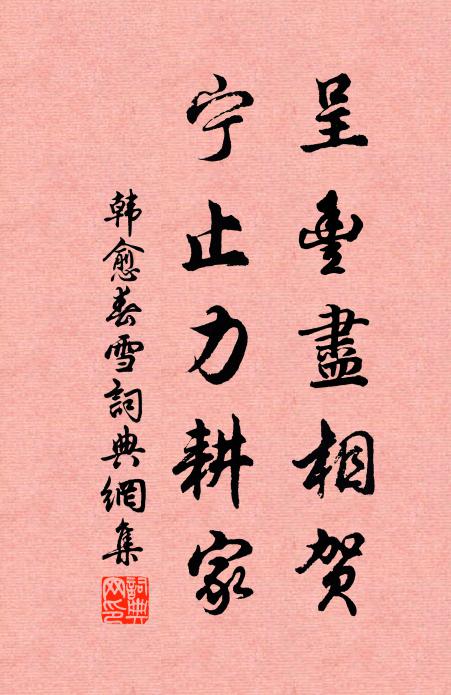 呈豐盡相贺
宁止力耕家
韩愈春雪詞典網集
詞典網印